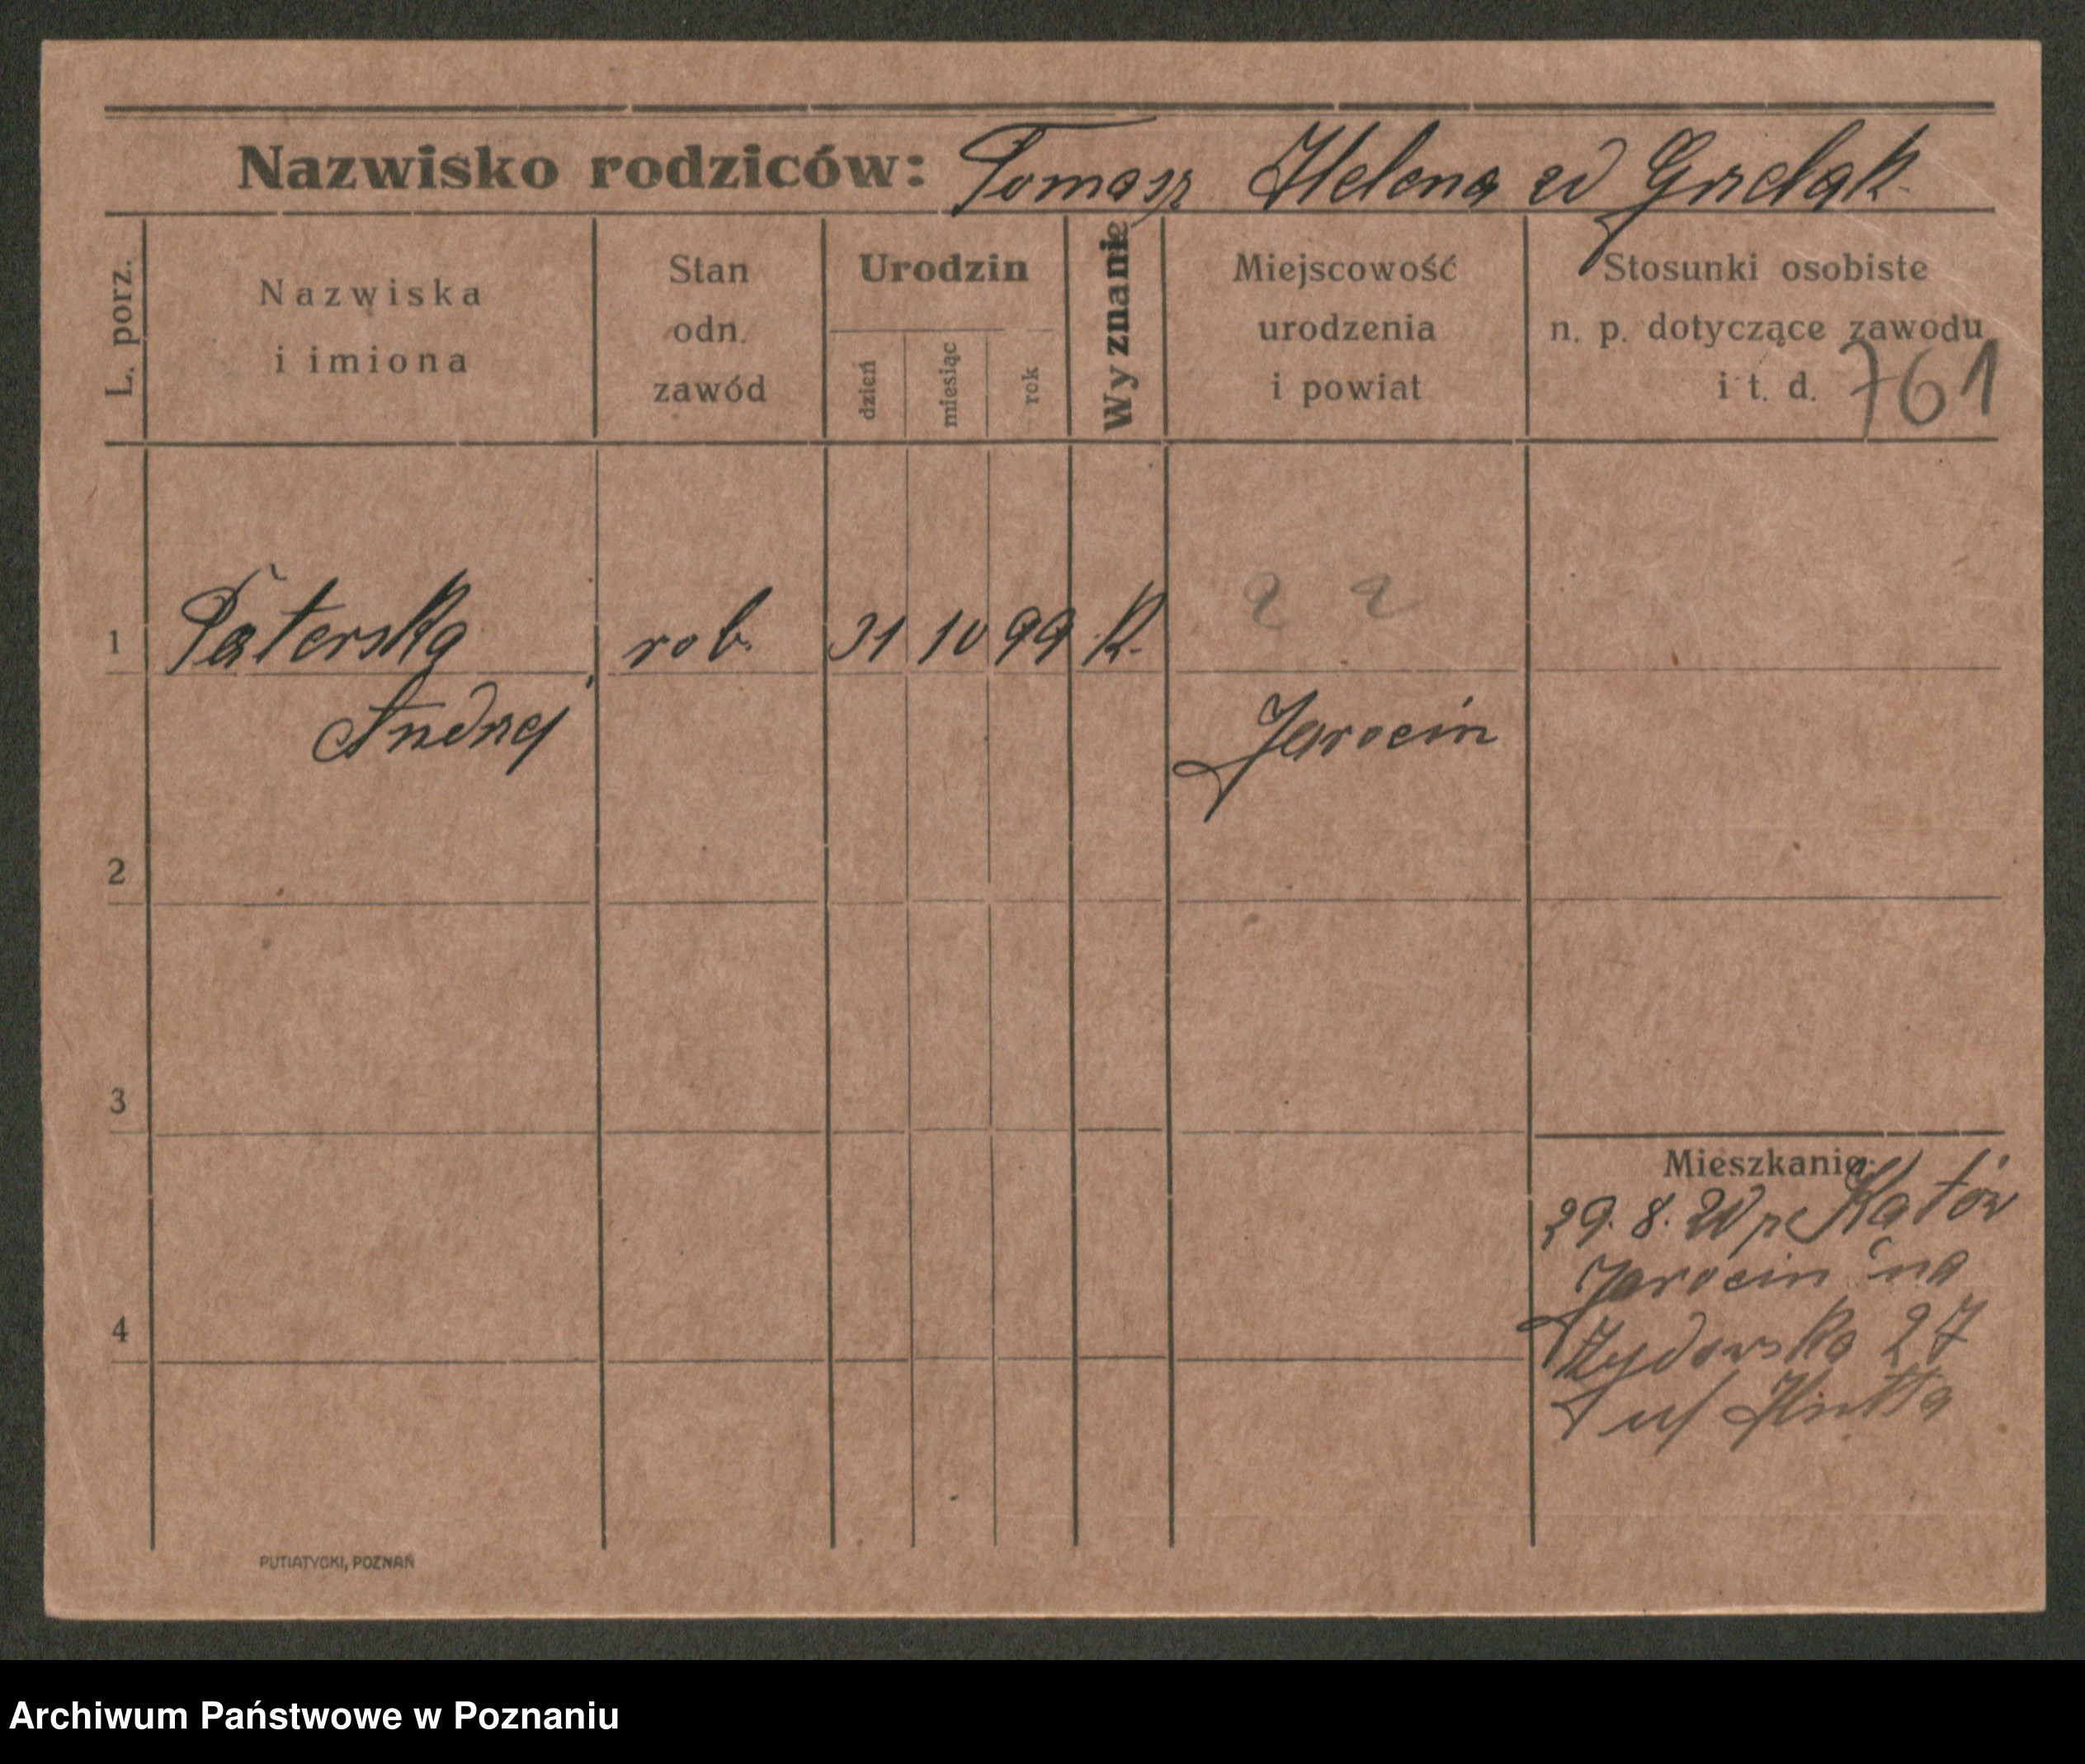 Nazwisko rodziców: Tomasz Helena zd Grzelak
L. porz.
Nazwiska
i imiona
Stan
odn.
zawód
Urodzin
dzień
miesiąc
rok
Wyznanie
Miejscowość
urodzenia
i powiat
Stosunki osobiste
n. p. dotyczące zawodu
i t. d. 761
2 2
1 Paterska rob. 31 10 99 K.
Andrzej Jarocin
2
3
4
Mieszkanie:
29. 8. Kątów
Jarocin na
Żydowska 27
PUTIATYCKI, POZNAŃ
Archiwum Państwowe w Poznaniu